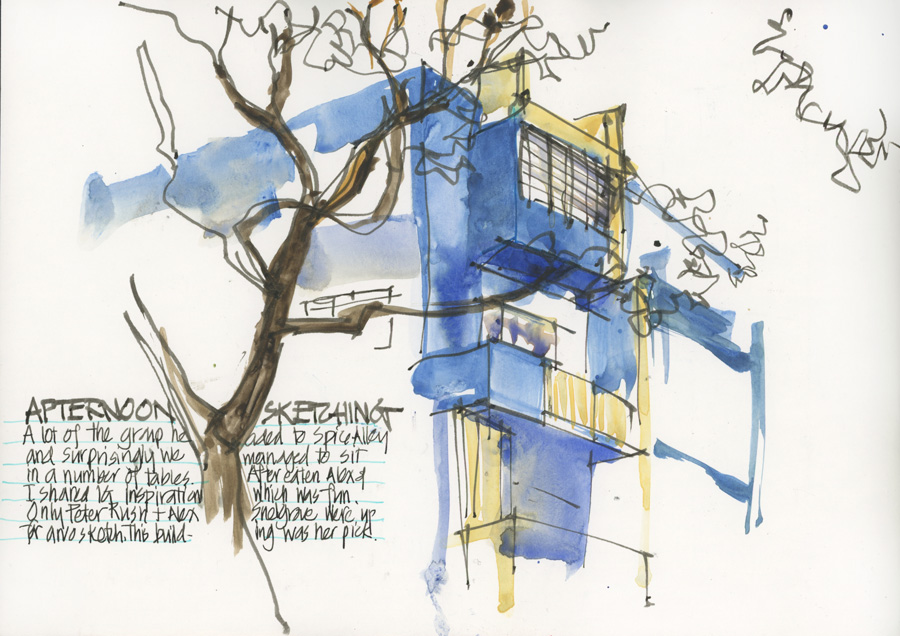 AFTERNOON SKETCHING
A lot of the group headed to Spice Alley
and surprisingly we managed to sit
in a number of tables. After eaten Alex &
I shared inspiration which was fun.
Only Peter Rush + Alex Snelgrove were up
for arvo sketch. This build-ing was her pick.